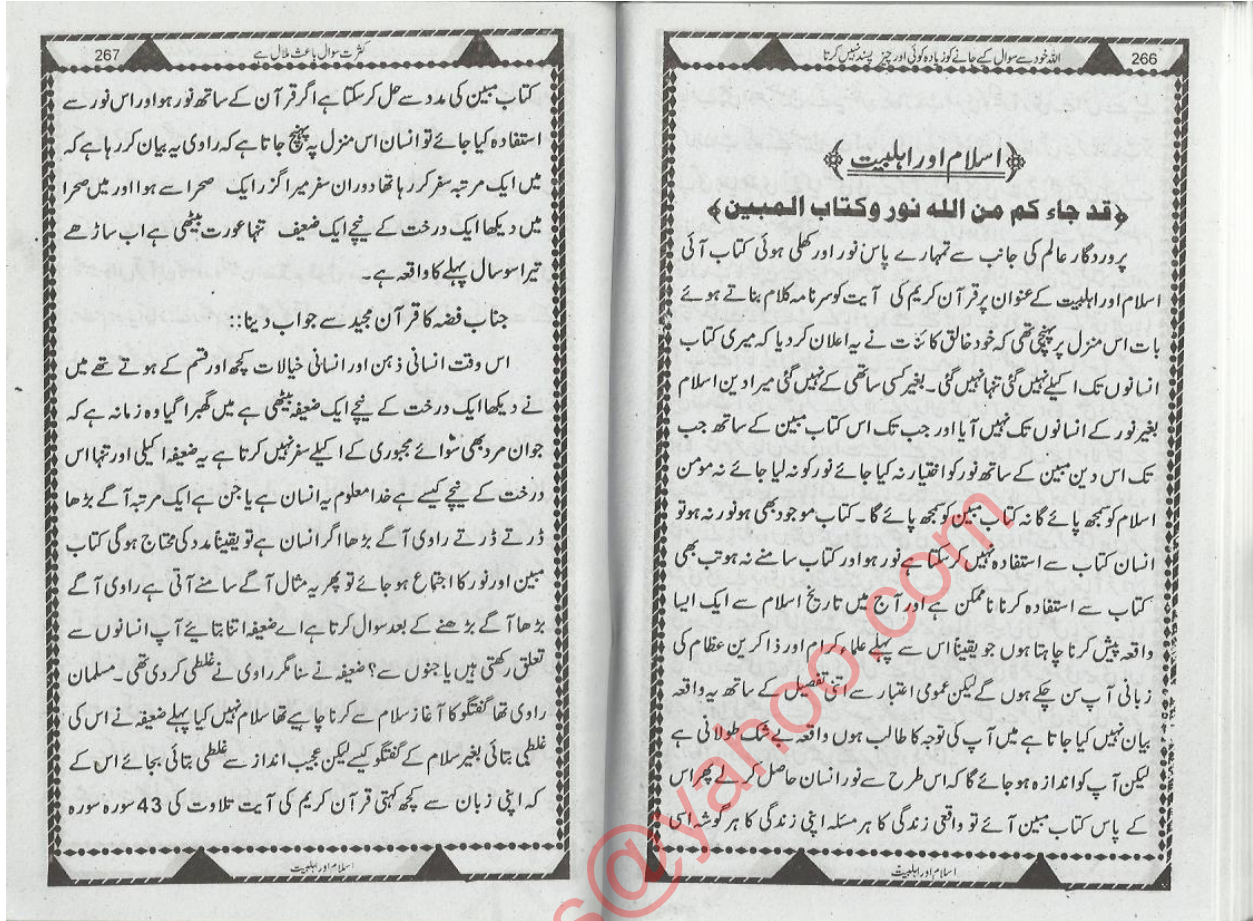 266
اللہ خود سے سوال کیے جانے کو زیادہ کوئی اور چیز پسند نہیں کرتا
﴿اسلام اور اہلبیت﴾
﴿قد جاء کم من الله نور و کتاب المبین﴾
پروردگار عالم کی جانب سے تمہارے پاس نور اور کھلی ہوئی کتاب آئی
اسلام اور اہلبیت کے عنوان پر قرآن کریم کی آیت کو سرنامہ کلام بناتے ہوئے
بات اس منزل پر پہنچی تھی کہ خود خالق کائنات نے یہ اعلان کر دیا کہ میری کتاب
انسانوں تک اکیلے نہیں گئی تنہا نہیں گئی۔ بغیر کسی ساتھی کے نہیں گئی میرا دین اسلام
بغیر نور کے انسانوں تک نہیں آیا اور جب تک اس کتاب مبین کے ساتھ جب
تک اس دین مبین کے ساتھ نور کو اختیار نہ کیا جائے نور کو نہ لیا جائے نہ مومن
اسلام کو سمجھ پائے گا نہ کتاب مبین کو سمجھ پائے گا۔ کتاب موجود بھی ہو نور نہ ہو تو
انسان کتاب سے استفادہ نہیں کر سکتا ہے نور ہو اور کتاب سامنے نہ ہو تب بھی
کتاب سے استفادہ کرنا ناممکن ہے اور آج میں تاریخ اسلام سے ایک ایسا
واقعہ پیش کرنا چاہتا ہوں جو یقیناً اس سے پہلے علماء کرام اور ذاکرین عظام کی
زبانی آپ سن چکے ہوں گے لیکن عمومی اعتبار سے اتنی تفصیل کے ساتھ یہ واقعہ
بیان نہیں کیا جاتا ہے میں آپ کی توجہ کا طالب ہوں واقعہ بے شک طولانی ہے
لیکن آپ کو اندازہ ہو جائے گا کہ اس طرح سے نور انسان حاصل کر لے پھر اس
کے پاس کتاب مبین آئے تو واقعی زندگی کا ہر مسئلہ اپنی زندگی کا ہر گوشہ اسی
اسلام اور اہلبیت
267
کثرت سوال باعث ملال ہے
کتاب مبین کی مدد سے حل کر سکتا ہے اگر قرآن کے ساتھ نور ہو اور اس نور سے
استفادہ کیا جائے تو انسان اس منزل پہ پہنچ جاتا ہے کہ راوی یہ بیان کر رہا ہے کہ
میں ایک مرتبہ سفر کر رہا تھا دوران سفر میرا گزر ایک صحرا سے ہوا اور میں صحرا
میں دیکھا ایک درخت کے نیچے ایک ضعیف تنہا عورت بیٹھی ہے اب ساڑھے
تیرا سو سال پہلے کا واقعہ ہے۔
جناب فضہ کا قرآن مجید سے جواب دینا::
اس وقت انسانی ذہن اور انسانی خیالات کچھ اور قسم کے ہوتے تھے میں
نے دیکھا ایک درخت کے نیچے ایک ضعیفہ بیٹھی ہے میں گھبرا گیا وہ زمانہ ہے کہ
جوان مرد بھی سوائے مجبوری کے اکیلے سفر نہیں کرتا ہے یہ ضعیفہ اکیلی اور تنہا اس
درخت کے نیچے کیسے ہے خدا معلوم یہ انسان ہے یا جن ہے ایک مرتبہ آگے بڑھا
ڈرتے ڈرتے راوی آگے بڑھا اگر انسان ہے تو یقیناً مدد کی محتاج ہو گی کتاب
مبین اور نور کا اجتماع ہو جائے تو پھر یہ مثال آگے سامنے آتی ہے راوی آگے
بڑھا آگے بڑھنے کے بعد سوال کرتا ہے اے ضعیفہ اتنا بتائیے آپ انسانوں سے
تعلق رکھتی ہیں یا جنوں سے؟ ضعیفہ نے سنا مگر راوی نے غلطی کر دی تھی۔ مسلمان
راوی تھا گفتگو کا آغاز سلام سے کرنا چاہیے تھا سلام نہیں کیا پہلے ضعیفہ نے اس کی
غلطی بتائی بغیر سلام کے گفتگو کیسے لیکن عجیب انداز سے غلطی بتائی بجائے اس کے
کہ اپنی زبان سے کچھ کہتی قرآن کریم کی آیت تلاوت کی 43 سورہ سورہ
اسلام اور اہلبیت
s@yahoo.com